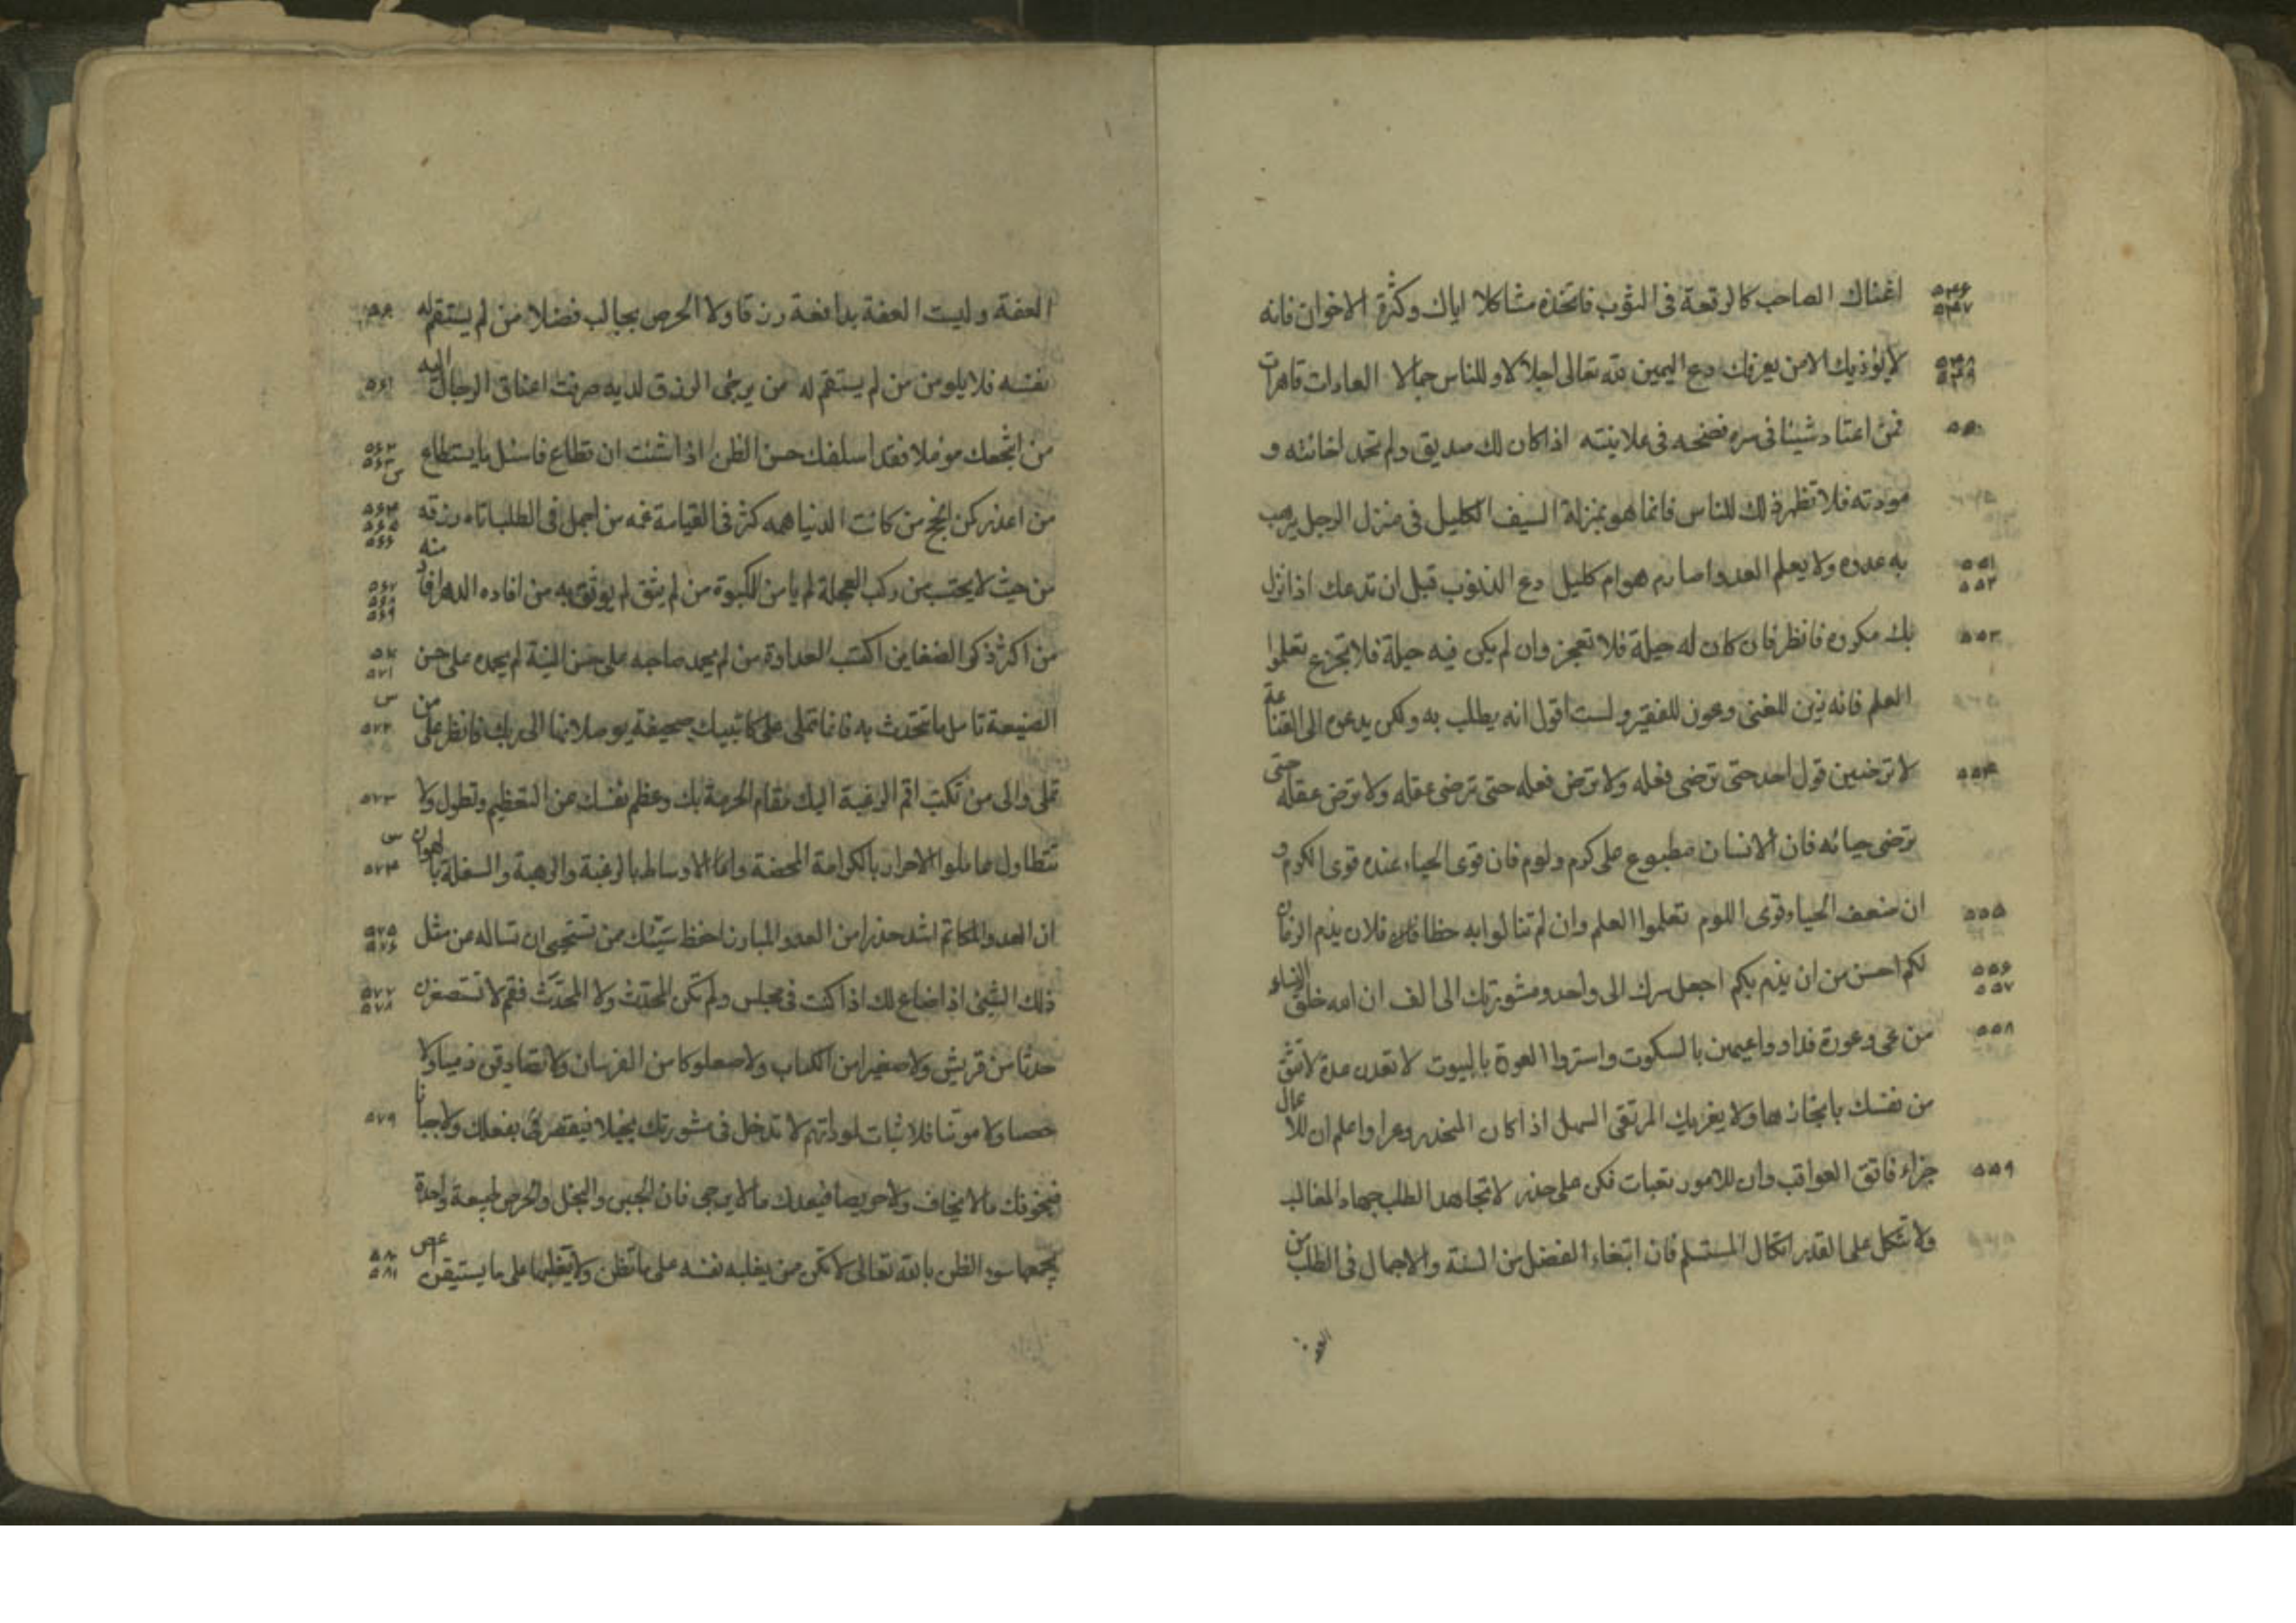 ٥٤٦ ٥٤٧ اغناك الصاحب كالرقعة فى الثوب فاتخذه مشاكلا اياك وكثرة الاخوان فانه
٥٤٨ ٥٤٩ لا يؤذيك الا من يعرفك دع اليمين لله تعالى اجلالا وللناس جمالا العادات قاهرات
٥٥٠ فمن اعتاد شيئا فى سره فضحه فى علانيته اذا كان لك صديق ولم تحمد اخائه و
مودته فلا تظهر ذلك للناس فانما هو بمنزلة السيف الكليل فى منزل الرجل يرهب
٥٥١ ٥٥٢ به عدوه ولا يعلم العدو اصارم هو ام كليل دع الذنوب قبل ان تدعك اذا نزل
٥٥٣ بك مكروه فانظر فان كان له حيلة فلا تعجز وان لم يكن فيه حيلة فلا تجزع تعلموا
العلم فانه زين للغنى وعون للفقير ولست اقول انه يطلب به ولكن يدعوه الى القناعة
٥٥٤ لا ترضين قول احد حتى ترضى فعله ولا ترض فعله حتى ترضى عقله ولا ترض عقله حتى
ترضى حيائه فان الانسان مطبوع على كرم ولوم فان قوى الحياء عنده قوى الكرم و
٥٥٥ ان ضعف الحياء قوى اللوم تعلموا العلم وان لم تنالوا به حظا فلان يذم الزمان
٥٥٦ ٥٥٧ لكم احسن من ان يذم بكم اجعل سرك الى واحد ومشورتك الى الف ان الله خلق النساء
٥٥٨ من عى وعورة فداووا عيهن بالسكوت واستروا العورة بالبيوت لا تعدن عدة لا تثق
من نفسك بانجازها ولا يغرنك المرتقى السهل اذا كان المنحدر وعرا واعلم ان للاعمال
٥٥٩ جزاء فاتق العواقب وان للامور بغتات فكن على حذر لا تجاهد الطلب جهاد المغالب
ولا تتكل على القدر اتكال المستسلم فان ابتغاء الفضل من السنة والاجمال فى الطلب من
العفة وليست العفة بدافعة رزقا ولا الحرص بجالب فضلا من لم يستقم له
٥٦١ نفسه فلا يلومن من لم يستقم له من يرجى الرزق لديه صرفت اعناق الرجال اليه
٥٦٢ ٥٦٣ من انتجعك مؤملا فقد اسلفك حسن الظن اذا شئت ان تطاع فاسئل ما يستطاع
٥٦٤ ٥٦٥ ٥٦٦ من اعذر كمن انجح من كانت الدنيا همه كثر فى القيامة غمه من اجمل فى الطلب اتاه رزقه
٥٦٧ ٥٦٨ ٥٦٩ من حيث لا يحتسب من ركب العجلة لم يامن الكبوة من لم يثق لم يوثق به من افاده الدهر افاد منه
٥٧٠ ٥٧١ من اكثر ذكر الضغاين اكتسب العداوة من لم يحمد صاحبه على حسن النية لم يحمده على حسن
٥٧٢ الصنيعة تامل ما تتحدث به فانما تملى على كاتبيك صحيفة يوصلانها الى ربك فانظر على من
٥٧٣ تملى والى من تكتب اقم الرغبة اليك مقام الحرمة بك وعظم نفسك عن التعظيم وتطول ولا
٥٧٤ تتطاول عاملوا الاحرار بالكرامة المحضة واما الاوساط بالرغبة والرهبة والسفلة بالهوان
٥٧٥ ٥٧٦ ان العدو المكاتم اشد حذرا من العدو المبارز احفظ شيئك ممن تستحيى ان تساله عن مثل
٥٧٧ ٥٧٨ ذلك الشيئ اذا ضاع لك اذا كنت فى مجلس ولم تكن المحدِّث ولا المحدَّث فقم لا تستصغرن
حدثا من قريش ولا صغيرا من الكتاب ولا صعلوكا من الفرسان ولا تصادقن ذميا ولا
٥٧٩ خصيا ولا مونثا فلا ثبات لموداتهم لا تدخل فى مشورتك بخيلا فيقصر بفعلك ولا جبانا
فيخوفك ما لا يخاف ولا حريصا فيعدك ما لا يرجى فان الجبن والبخل والحرص طبيعة واحدة
٥٨٠ ٥٨١ يجمعها سوء الظن بالله تعالى لا تكن ممن يغلبه نفسه على ما تظن ولا يغلبها على ما يستيقن